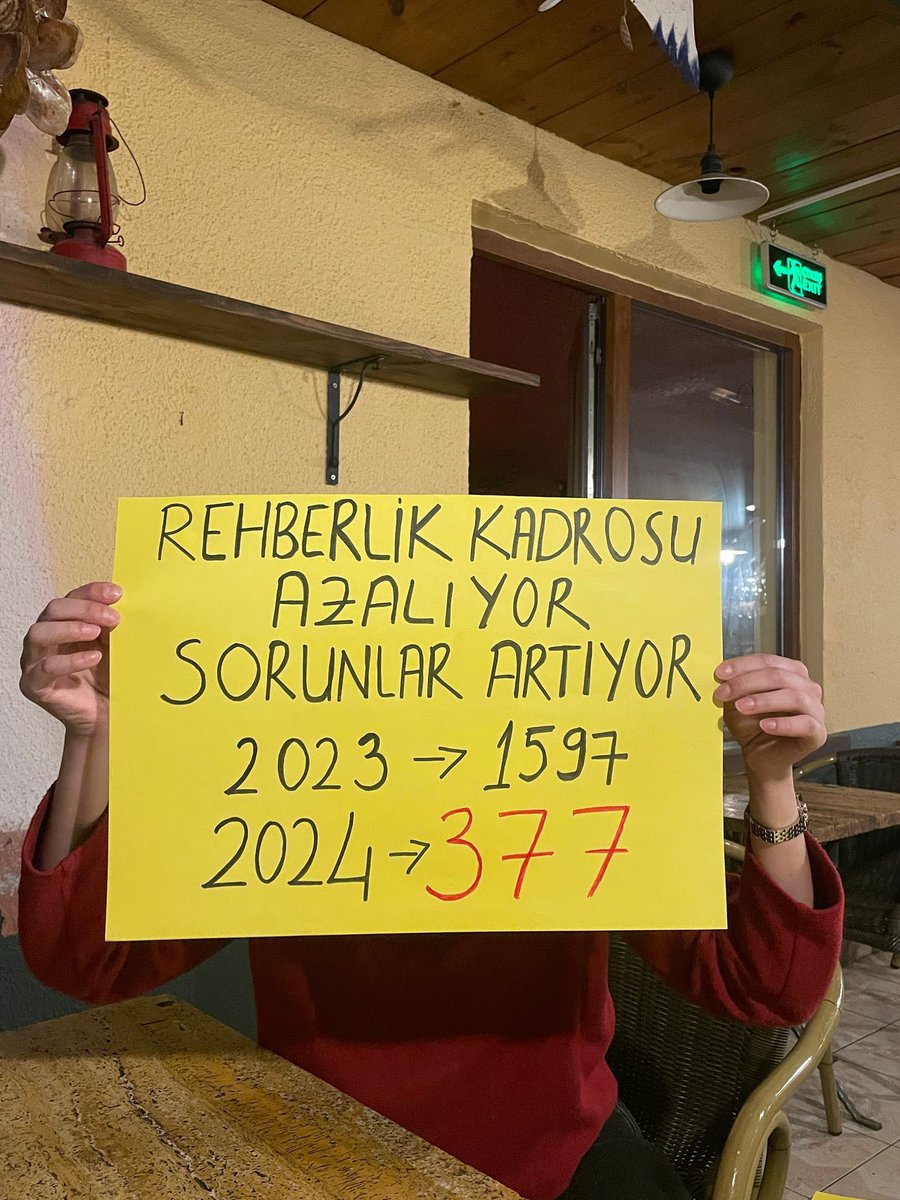 REHBERLİK KADROSU
AZALIYOR
SORUNLAR ARTIYOR
2023 → 1597
2024 → 377
EXIT